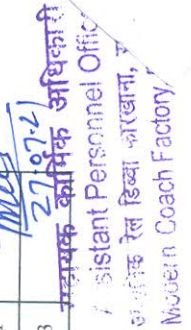 27.07.21
सहायक कार्मिक अधिकारी
Assistant Personnel Offic
रेल डिब्बा कारखाना,
Modern Coach Factory,
3